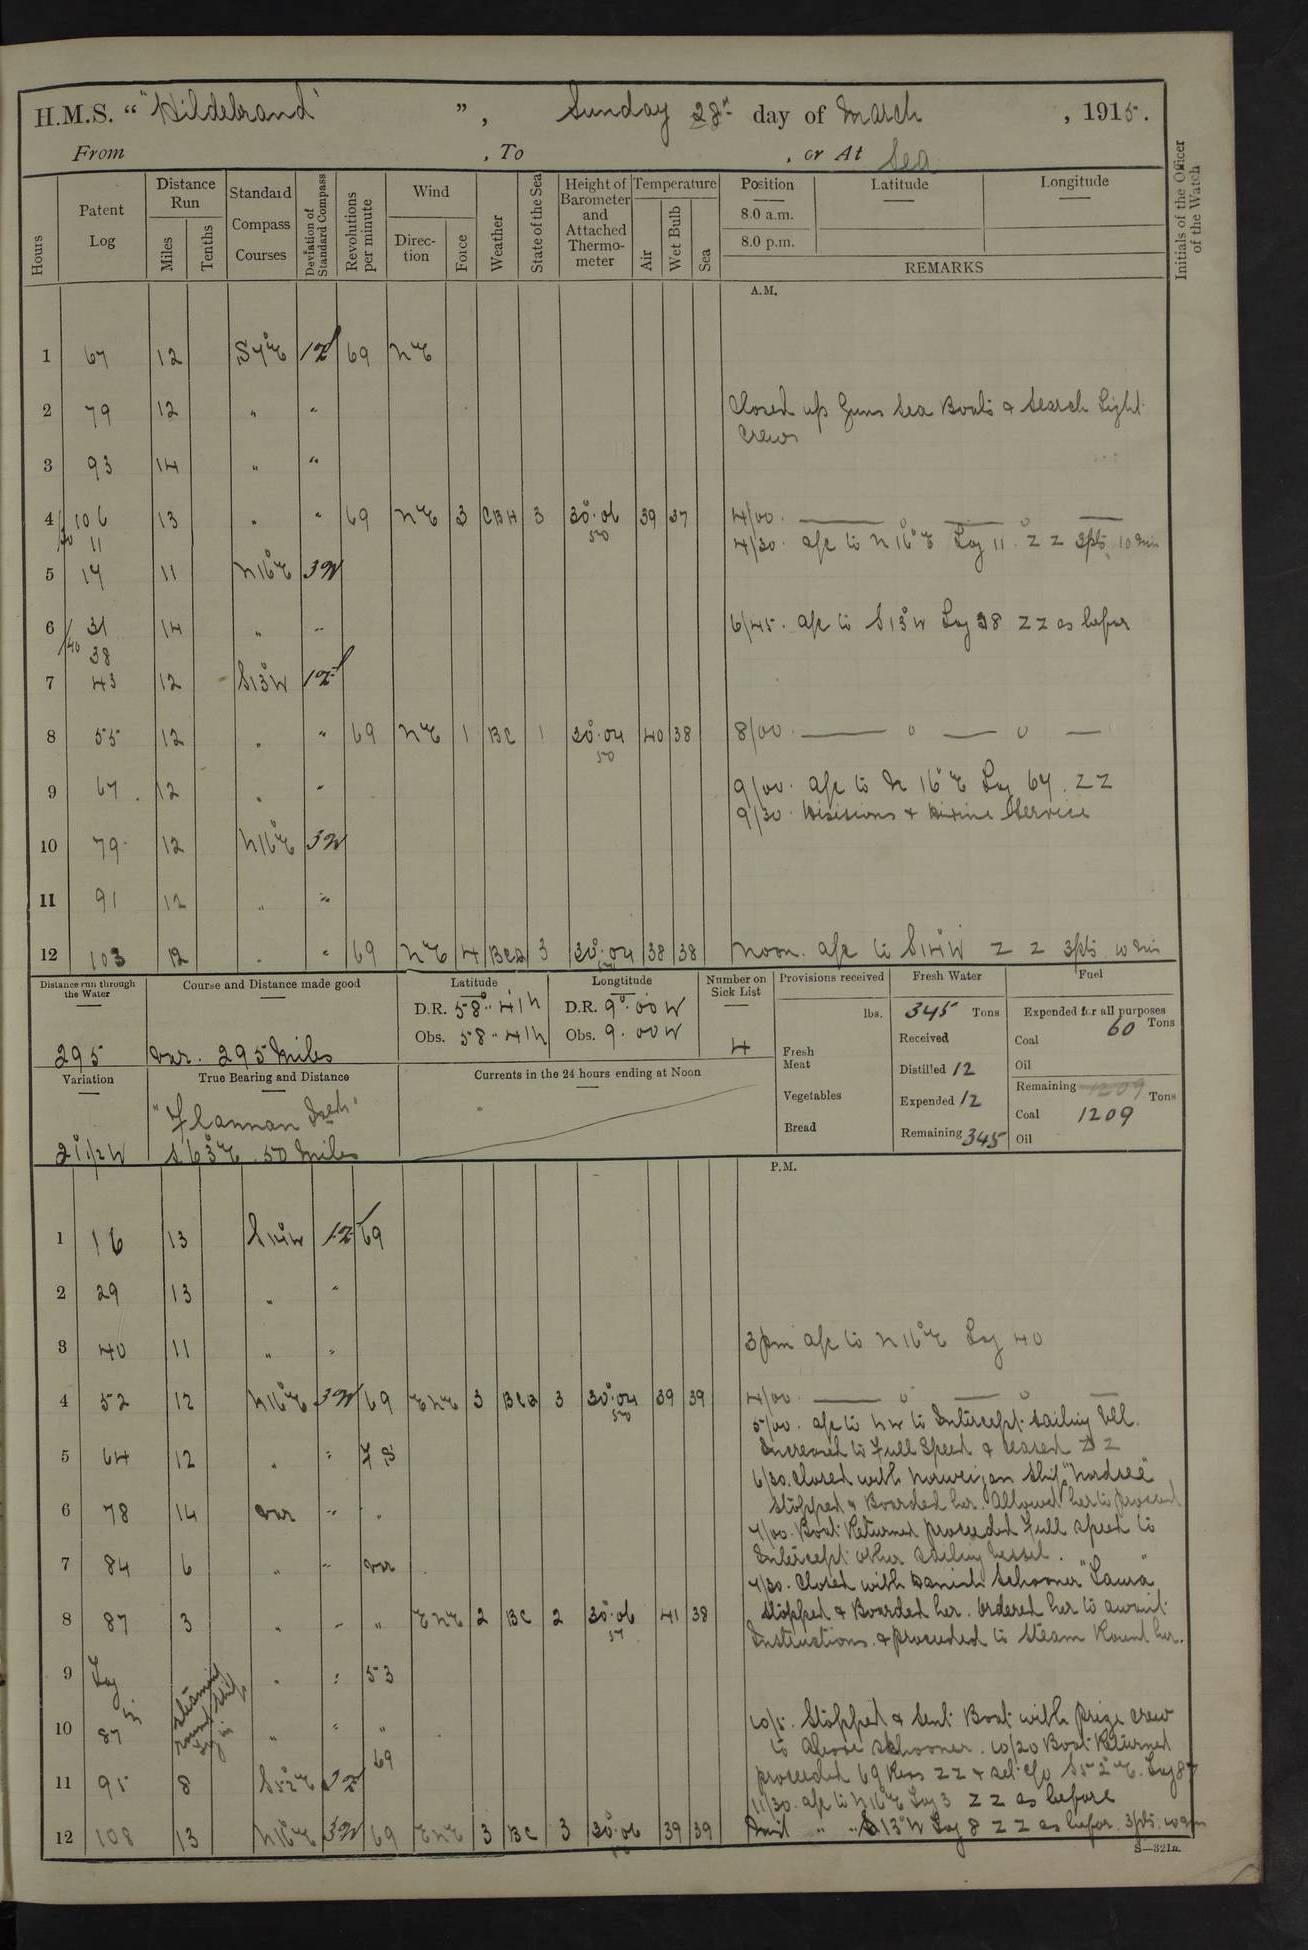 H.M.S. “ "Hildebrand" ”, Sunday 28th day of March , 1915.
From , To , or At Sea
Hours
Patent Log
Distance Run
Miles Tenths
Standard Compass Courses
Deviation of Standard Compass
Revolutions per minute
Wind
Direction Force
Weather
State of the Sea
Height of Barometer and Attached Thermometer
Temperature
Air Wet Bulb Sea
Position Latitude Longitude
8.0 a.m.
8.0 p.m.
REMARKS
Initials of the Officer of the Watch
A.M.
1 67 12 S7°E 1E 69 NE
2 79 12 " " Closed up Guns Sea Boats & Search Light
Crews
3 93 14 " "
4 106 13 " " 69 NE 3 CBH 3 30.06 39 37 4/00
/30 11 50 4/30. a/c to N16°E Log 11. ZZ 3pts 10 min
5 17 11 N16°E 3W
6 31 14 " " 6/45. a/c to S13°W Log 38 ZZ as before
/40 38
7 43 12 S13°W 1E
8 55 12 " " 69 NE 1 BC 1 30.04 40 38 8/00
50
9 67 12 " " 9/00. a/c to N16°E Log 67. ZZ
9/30. Divisions & Divine Service
10 79 12 N16°E 3W
11 91 12 " "
12 103 12 " " 69 NE 4 BCD 3 30.04 38 38 Noon. a/c to S14°W ZZ 3pts 10 min
Distance run through the Water
295
Course and Distance made good
Var. 295 Miles
Latitude
D.R. 58° 41 N
Obs. 58 41 N
Longtitude
D.R. 9° 00 W
Obs. 9. 00 W
Number on Sick List
4
Provisions received
lbs.
Fresh Meat
Vegetables
Bread
Fresh Water
345 Tons
Received
Distilled 12
Expended 12
Remaining 345
Fuel
Expended for all purposes
Coal 60 Tons
Oil
Remaining 1209 Tons
Coal 1209
Oil
Variation
21 1/2 W
True Bearing and Distance
"Flannan Isds"
S63°E. 50 Miles
Currents in the 24 hours ending at Noon
P.M.
1 16 13 S14°W 1E 69
2 29 13 " "
3 40 11 " " 3pm a/c to N16°E Log 40
4 52 12 N16°E 3W 69 ENE 3 BCD 3 30.04 39 39 4/00
50
5/00. a/c to NW to Intercept sailing Vll.
5 64 12 " " F S Increased to Full Speed & ceased ZZ
6/30. Closed with Norweigan Ship "Nordsee"
6 78 14 Var " " Stopped & Boarded her. Allowed her to proceed
7/00. Boat Returned proceeded Full speed to
7 84 6 " " Var Intercept other sailing vessel.
7/30. Closed with Danish Schooner "Laura"
8 87 3 " " " ENE 2 BC 2 30.06 41 38 Stopped & Boarded her. Ordered her to await
Instructions & proceeded to Steam Round her.
9 Log " " 53
in Steaming round ship Log in
10 87 " " " 10/5. Stopped & sent Boat with prize crew
to above schooner. 10/20 Boat Returned
11 95 8 S52°E 2E 69 proceeded 69 Revs ZZ & set c/o S52°E. Log 87
11/30. a/c to N16°E Log 3 ZZ as before
12 108 13 N16°E 3W 69 ENE 3 BC 3 30.06 39 39 Mid " " S13°W Log 8 ZZ as before. 3pts. 10 min
S—321a.